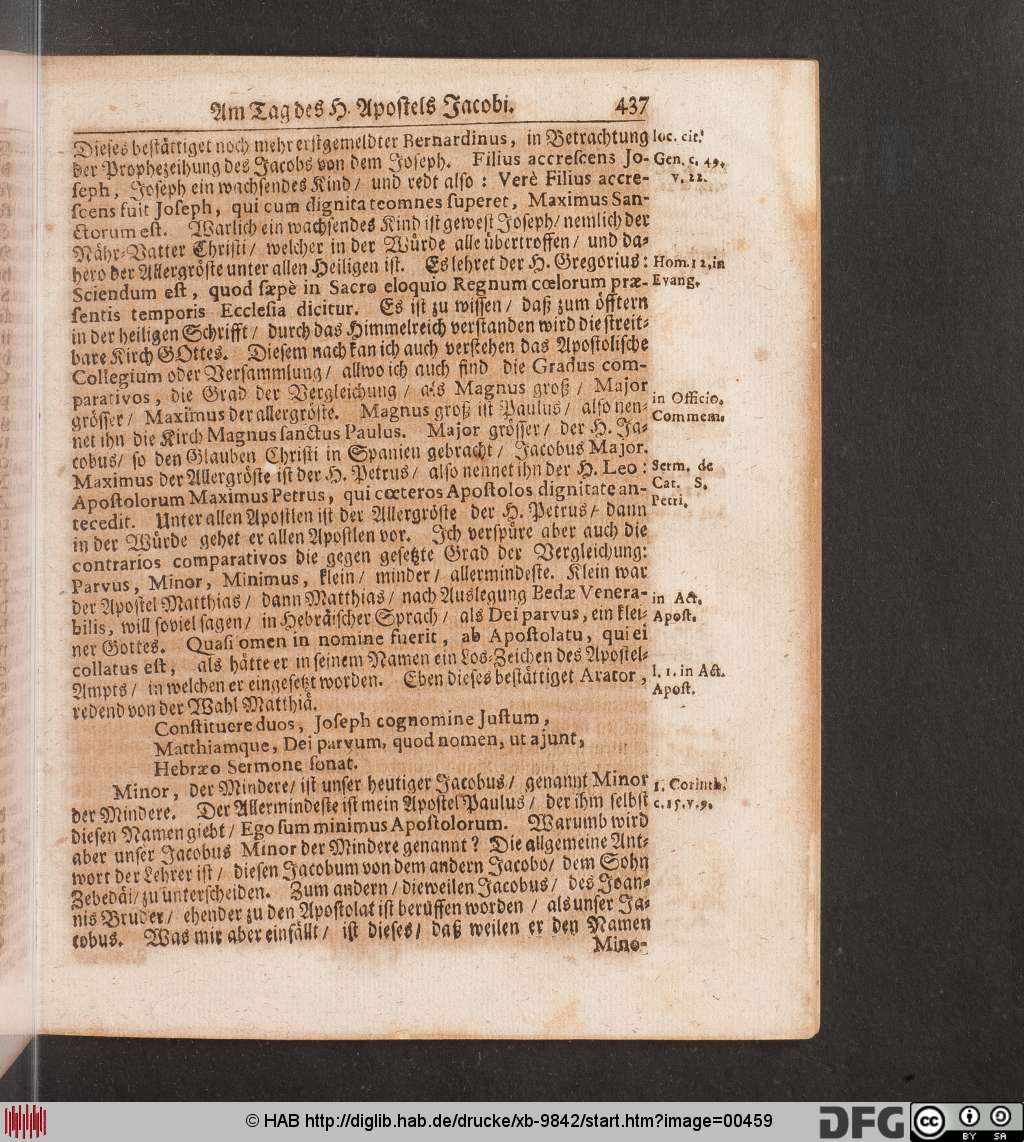 Am Tag des H. Apostels Jacobi. 437
Dieses bestättiget noch mehr erstgemeldter Bernardinus, in Betrachtung
loc. cit.
der Prophezeihung des Jacobs von dem Joseph. Filius accrescens Jo-
Gen. c. 49.
seph, Joseph ein wachsendes Kind/ und redt also: Verè Filius accre-
v. 22.
scens fuit Joseph, qui cum dignitate omnes superet, Maximus San-
ctorum est. Warlich ein wachsendes Kind ist gewest Joseph/ nemlich der
Nähr-Vatter Christi/ welcher in der Würde alle übertroffen/ und da-
hero der Allergröste unter allen Heiligen ist. Es lehret der H. Gregorius:
Hom. 12. in
Sciendum est, quod sæpè in Sacro eloquio Regnum cœlorum præ-
Evang.
sentis temporis Ecclesia dicitur. Es ist zu wissen/ daß zum öfftern
in der heiligen Schrifft/ durch das Himmelreich verstanden wird die streit-
bare Kirch GOttes. Diesem nach kan ich auch verstehen das Apostolische
Collegium oder Versammlung/ allwo ich auch find die Gradus com-
parativos, die Grad der Vergleichung/ als Magnus groß/ Major
in Officio.
grösser/ Maximus der allergröste. Magnus groß ist Paulus/ also nen-
Commem.
net ihn die Kirch Magnus sanctus Paulus. Major grösser/ der H. Ja-
cobus/ so den Glauben Christi in Spanien gebracht/ Jacobus Major.
Maximus der Allergröste ist der H. Petrus/ also nennet ihn der H. Leo:
Serm. de
Apostolorum Maximus Petrus, qui cœteros Apostolos dignitate an-
Cat. S.
tecedit. Unter allen Apostlen ist der Allergröste der H. Petrus/ dann
Petri.
in der Würde gehet er allen Apostlen vor. Ich verspüre aber auch die
contrarios comparativos die gegen gesetzte Grad der Vergleichung:
Parvus, Minor, Minimus, klein/ minder/ allermindeste. Klein war
der Apostel Matthias/ dann Matthias/ nach Auslegung Bedæ Venera-
in Act.
bilis, will soviel sagen/ in Hebräischer Sprach/ als Dei parvus, ein klei-
Apost.
ner Gottes. Quasi omen in nomine fuerit, ab Apostolatu, qui ei
collatus est, als hätte er in seinem Namen ein Los-Zeichen des Apostel-
Ampts/ in welchen er eingesetzt worden. Eben dieses bestättiget Arator,
l. 1. in Act.
redend von der Wahl Matthiä.
Apost.
Constituere duos, Joseph cognomine Justum,
Matthiamque, Dei parvum, quod nomen, ut ajunt,
Hebræo Sermone sonat.
Minor, der Mindere/ ist unser heutiger Jacobus/ genannt Minor
1. Corinth.
der Mindere. Der Allermindeste ist mein Apostel Paulus/ der ihm selbst
c. 15. v. 9.
diesen Namen giebt/ Ego sum minimus Apostolorum. Warumb wird
aber unser Jacobus Minor der Mindere genannt? Die allgemeine Ant-
wort der Lehrer ist/ diesen Jacobum von dem andern Jacobo/ dem Sohn
Zebedäi/ zu unterscheiden. Zum andern/ dieweilen Jacobus/ des Joan-
nis Bruder/ ehender zu den Apostolat ist berüffen worden/ als unser Ja-
cobus. Was mir aber einfällt/ ist dieses/ daß weilen er den Namen
Mino-
© HAB http://diglib.hab.de/drucke/xb-9842/start.htm?image=00459
DFG
cc BY SA